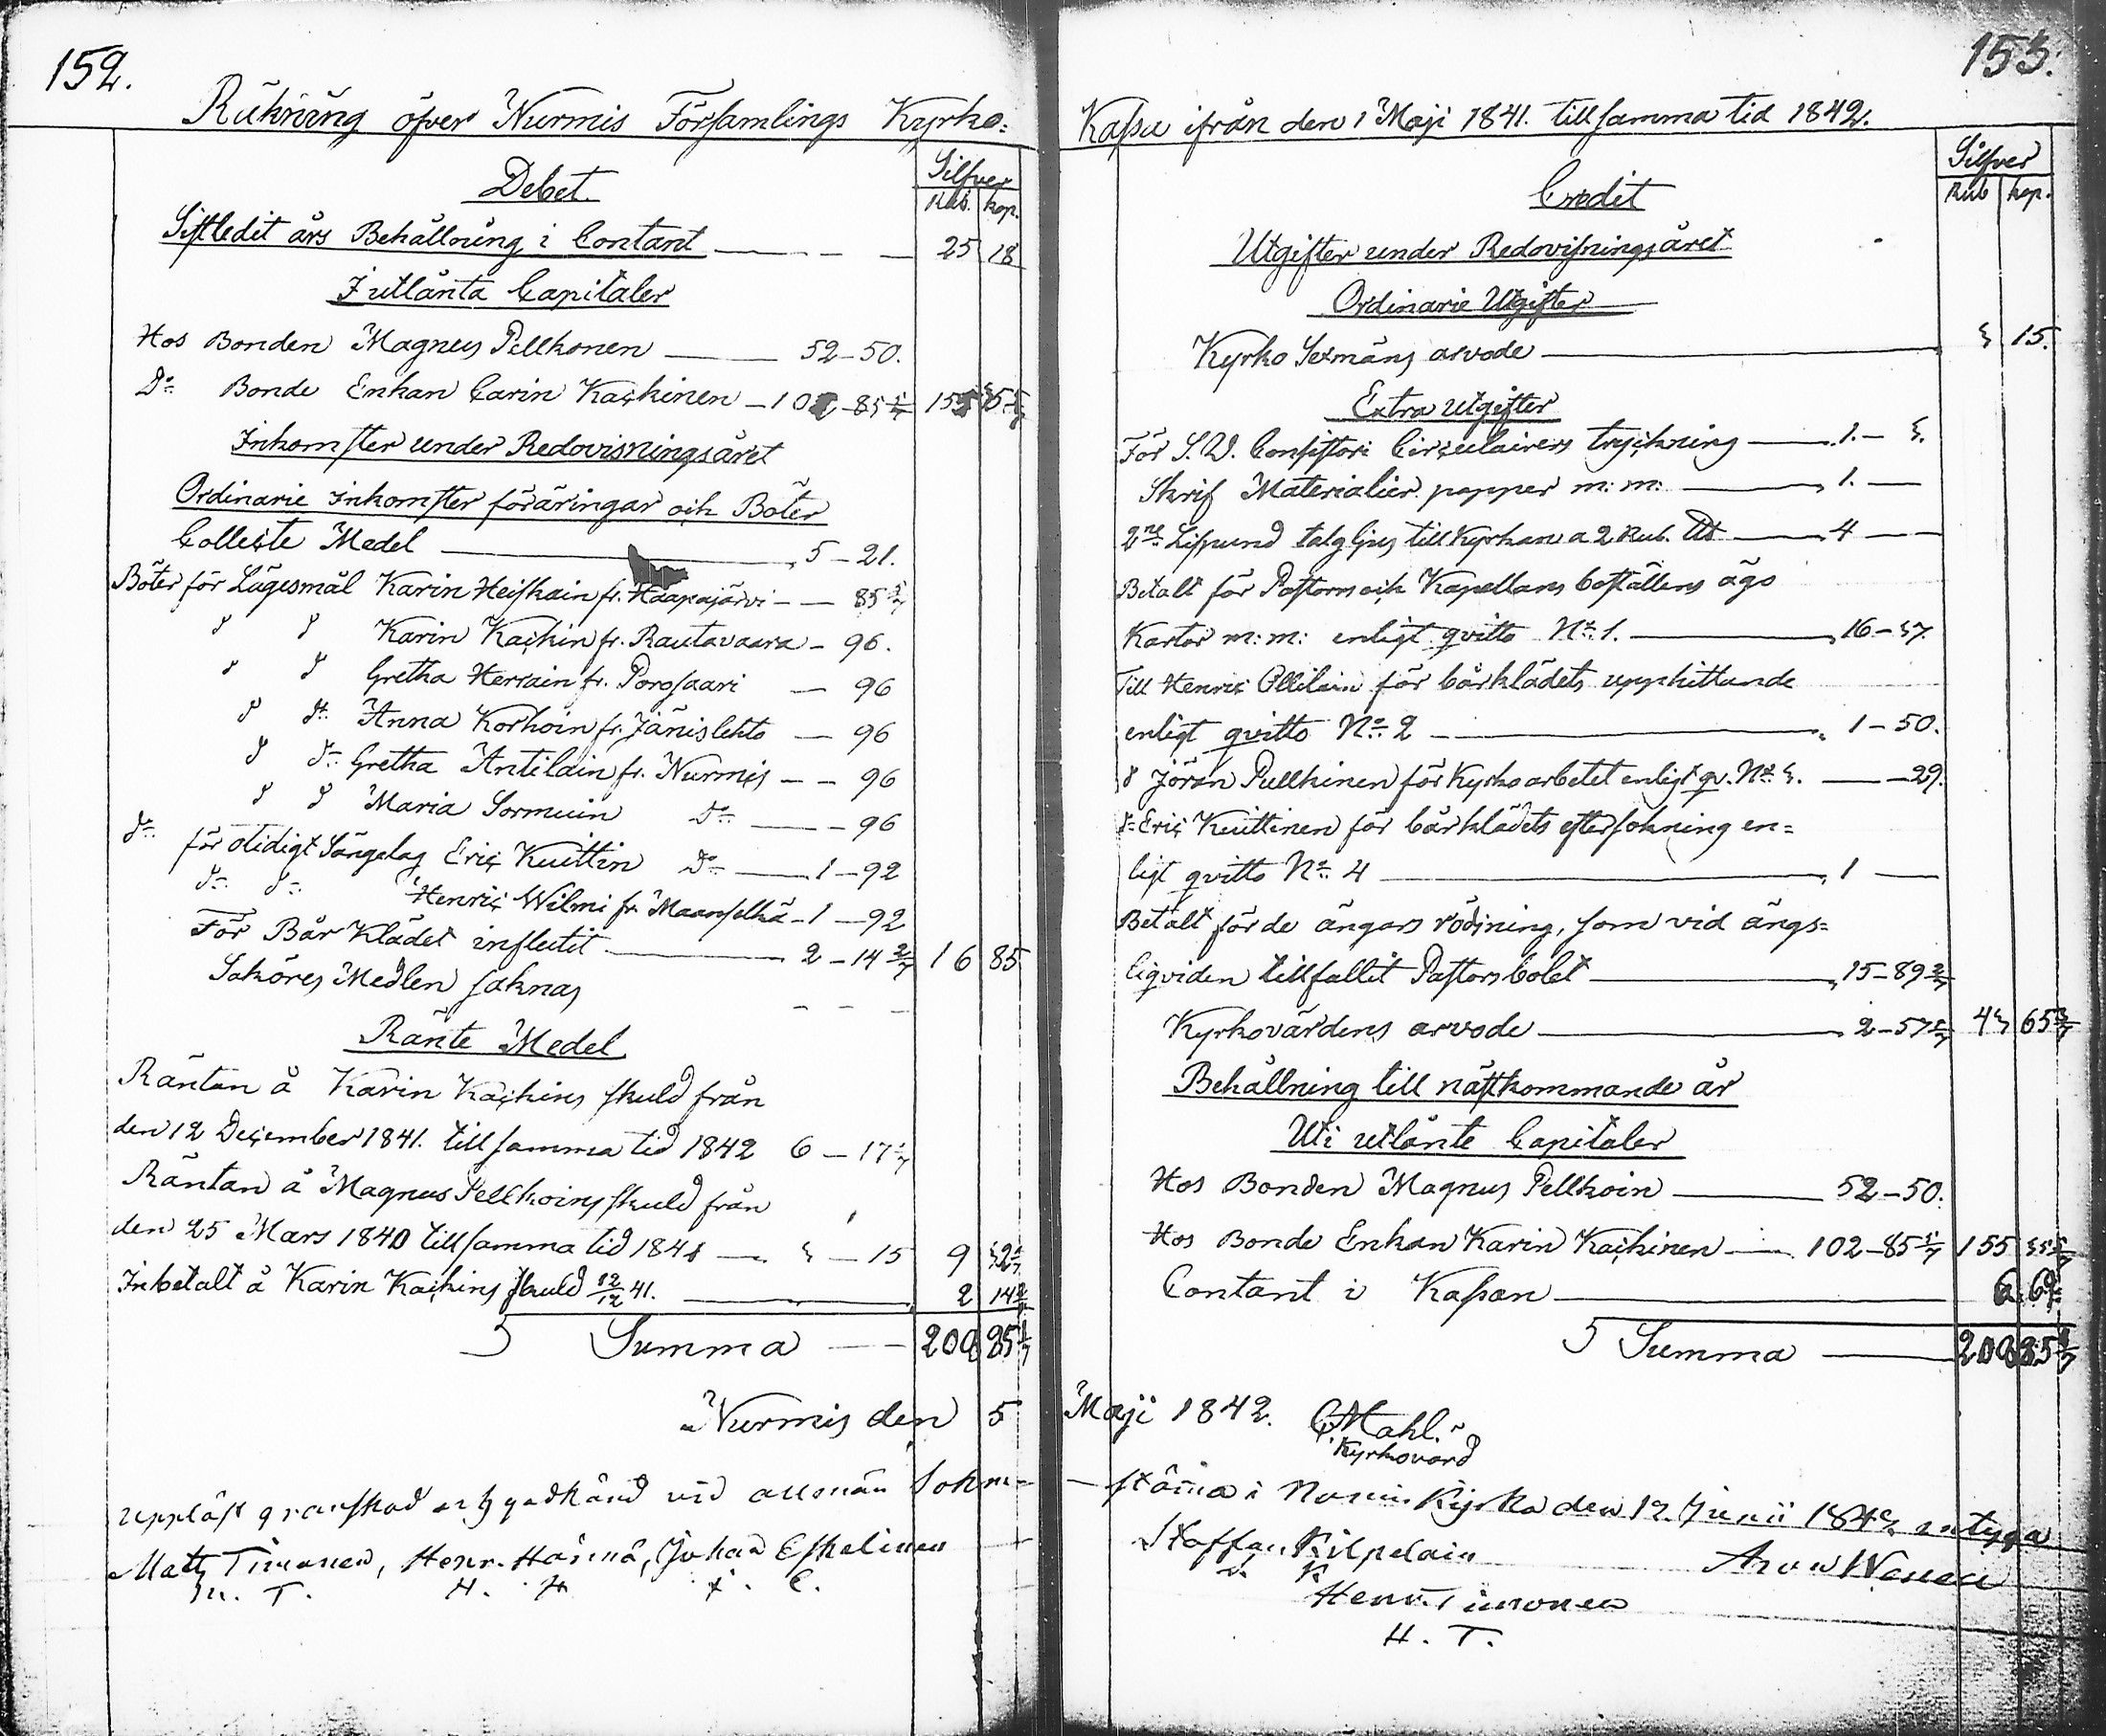 152.
Räkning öfver Nurmis Församlings Kyrko=
Silfver
Debet.
Rub. kop.
Sistledit års Behållning i Contant — 25 18
I utlånta Capitaler
Hos Bonden Magnus Pellkonen — 52–50.
Do Bonde Enkan Carin Kackinen – 102–85 5/7 155 35 5/7
Inkomster under Redovisningsåret
Ordinarie inkomster föräringar och Böter
Collecte Medel — 5–21.
Böter för Lägesmål Karin Heiskain fr. Haapajärvi – 85 5/7
d d Karin Kackin fr. Rautavaara – 96.
d d Gretha Herrain fr. Porosaari – 96
d do Anna Korhoin fr. Jänislehto – 96
d do Gretha Antilain fr. Nurmis – 96
d d Maria Sormuin do – 96
do för otidigt Sängelag Eric Kuittin Do – 1–92
do do Henric Wilmi fr. Maanselkä – 1–92
För Bår Klädet influtit — 2–14 2/7 16 85
Saköres Medlen saknas – – –
Ränte Medel
Räntan å Karin Kackins skuld från
den 12 December 1841. till samma tid 1842 6–17 1/7
Räntan å Magnus Pellkoins skuld från
den 25 Mars 1840 till samma tid 1841 — 3–15 9 32 1/7
Inbetalt å Karin Kackins skuld 12/12 41. — 2 14 2/7
Summa — 208 85 1/7
Nurmis den 5
uppläst granskad och godkänd vid allmän Sokn=
Matts Timonen, Henr. Hämä, Johan Eskelinen
M. T. H. H. J. E.
153.
Kassa ifrån den 1 Maji 1841. till samma tid 1842.
Silfver
Credit
Rub kop.
Utgifter under Redovisningsåret
Ordinarie Utgifter
Kyrko Sexmäns arvode — 3 15.
Extra utgifter
För S. W. Consistori Circulairers tryckning — 1.– 3.
Skrif Materialier papper m: m: — 1. —
2ne Lispund talg ljus till Kyrkan a 2 Rub. Ud — 4 —
Betalt för Pastorns och Kapellans boställens ägo
Kartor m: m: enligt qvitto No 1. — 16–37.
Till Henric Ollilain för bårklädets upphittande
enligt qvitto No 2 — 1–50.
d Jöran Pullkinen för Kyrko arbetet enligt qv. No 3. — 29.
do Eric Kuittinen för bårklädets eftersokning en=
ligt qvitto No 4 — 1 —
Betalt för de ängars rödjning, som vid ängs=
liqviden tillfallit Pastorsbolet — 15–89 2/7
Kyrkovärdens arvode — 2–57 1/7 43 65 3/7
Behållning till nästkommande år
Uti utlånte Capitaler
Hos Bonden Magnus Pellkoin — 52–50.
Hos Bonde Enkan Karin Kackinen — 102–85 5/7 155 35 5/7
Contant i Kassan — 6 69
Summa — 208 85 1/7
Maji 1842. Mahl.
Kyrkovärd
stämma i Nurmis Kyrka den 12. Junii 1842 intyga
Staffan Kilpelain
S. K.
Henr. Timonen
H. T.